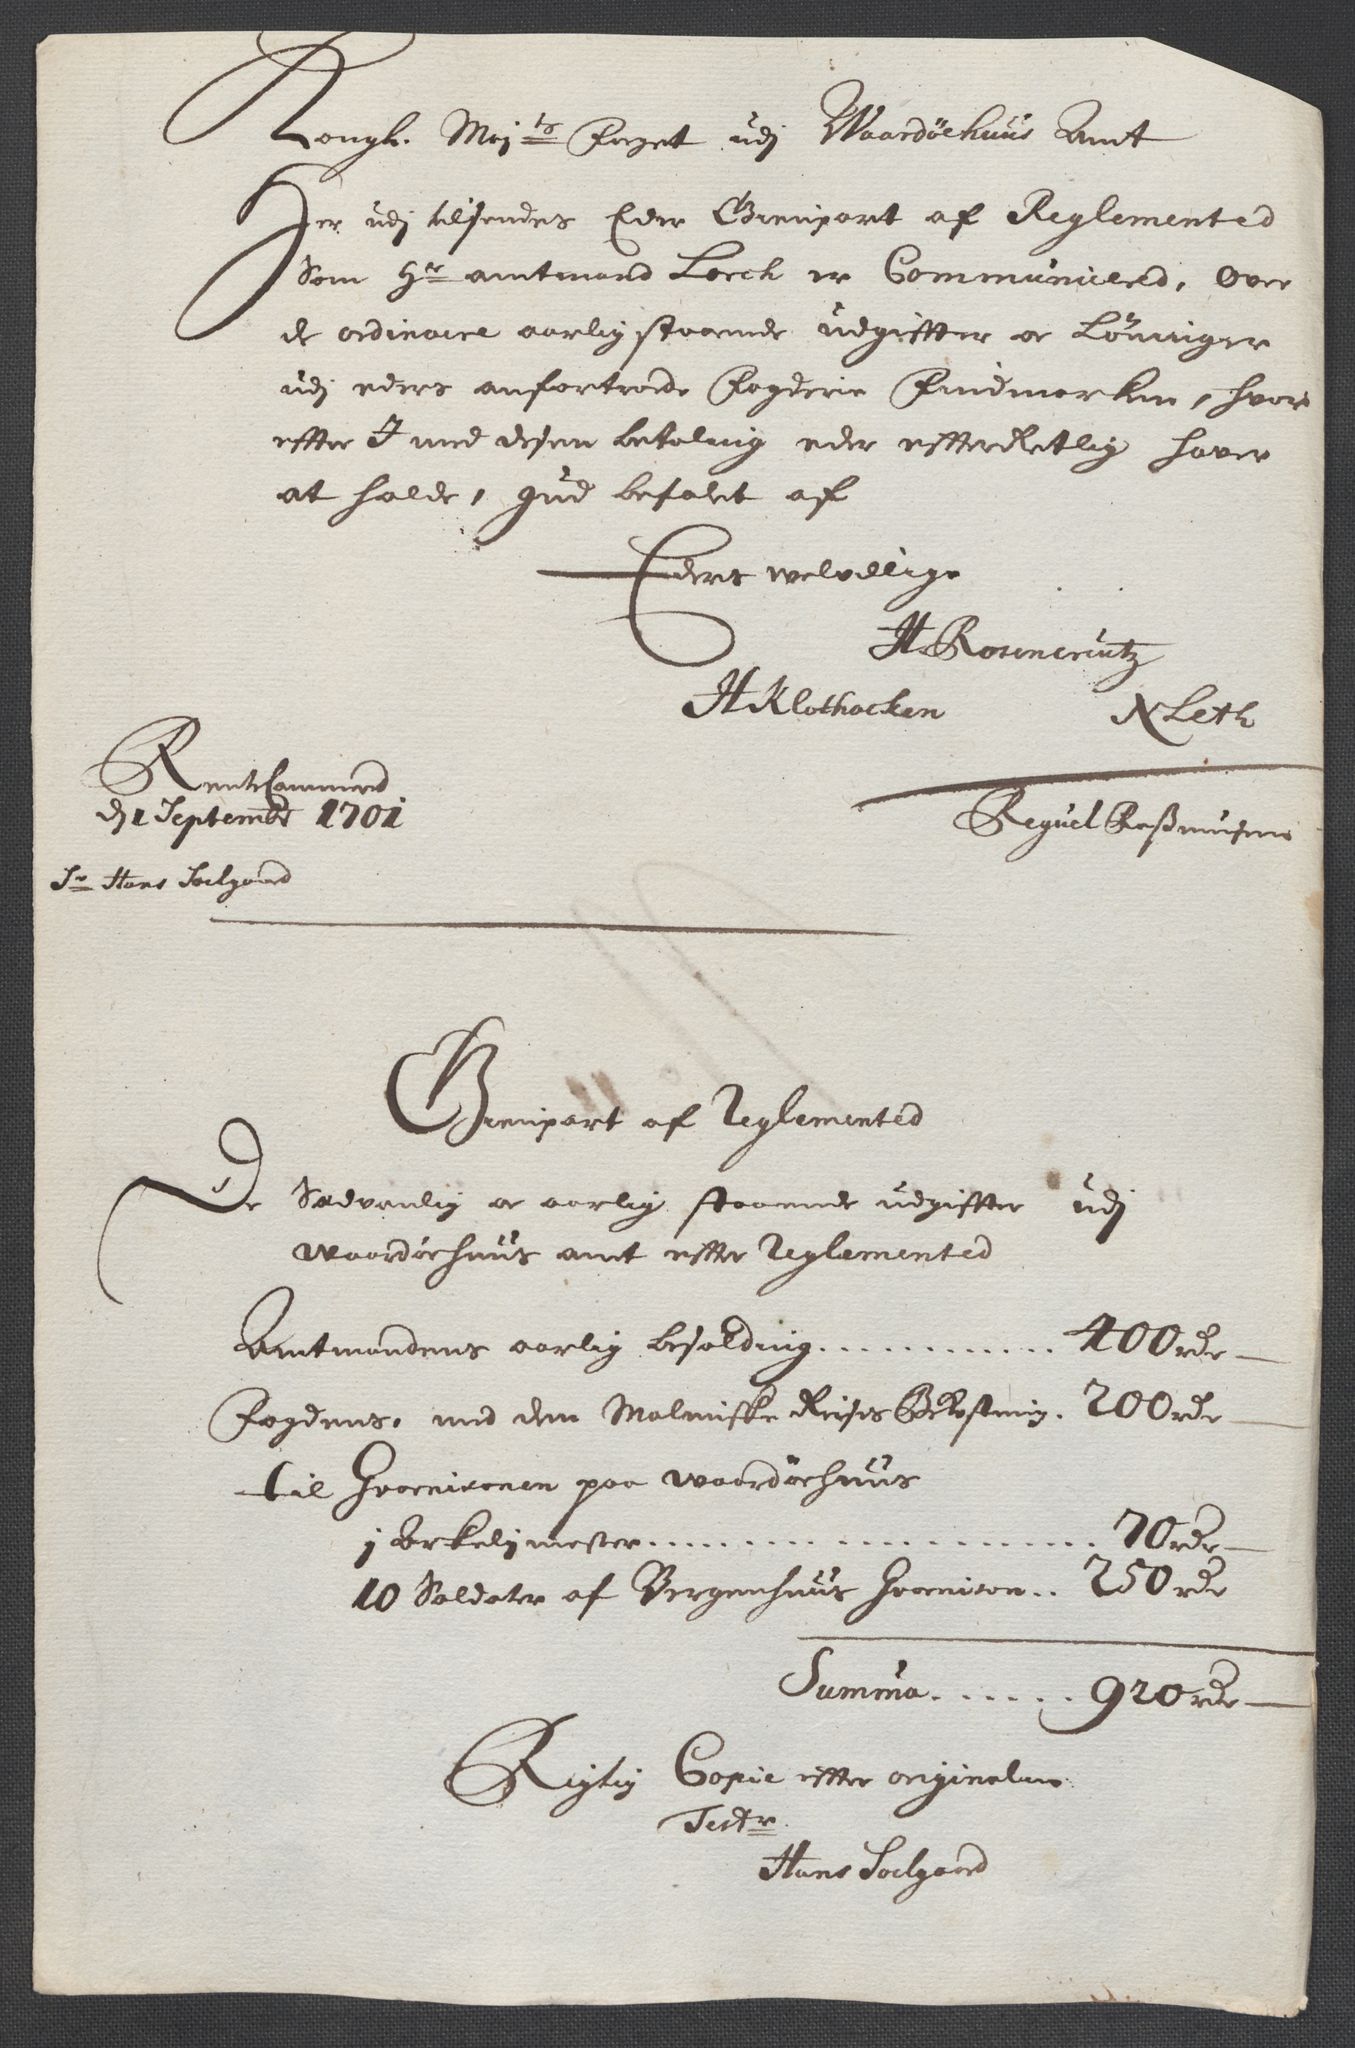 Kongl. Maj:ts Foget udj Waardöehuus Amt
Her udj tilsendes Eder Gienpart af Reglemented
Som Hr amtmand Lorch er Communicerd, over
de ordinaire aarlig staaende udgiffter oc Lönninger
udj eders anfortroede Fogderie Findmarken, hvor
effter I med desen betaling eder efferretlig haver
at holde, gud befalet af
Eders welvillige
H Rosencreutz
H Klothacken N Leth
RenteCammerd
dj 1 September 1701
Reguel Raßmusen
Sr Hans Soelgaard
Gienpart af Reglemented
De Sædvanlig oc aarlig staaende udgiffter udj
waardöehuus amt effter Reglemented
Amtmandens aarlig besolding............ 400 rdr
Fogdens, med den Malmiske Reises Bekostning. 200 rdr
til Guarnisonen paa waardöehuus
1 Arkelijmester........................ 70 rdr
10 Soldater af Bergenhuus Guarnison.. 250 rdr
Summa....... 920 rdr
Rigtig Copie effter originalen
Testr
Hans Soelgaard